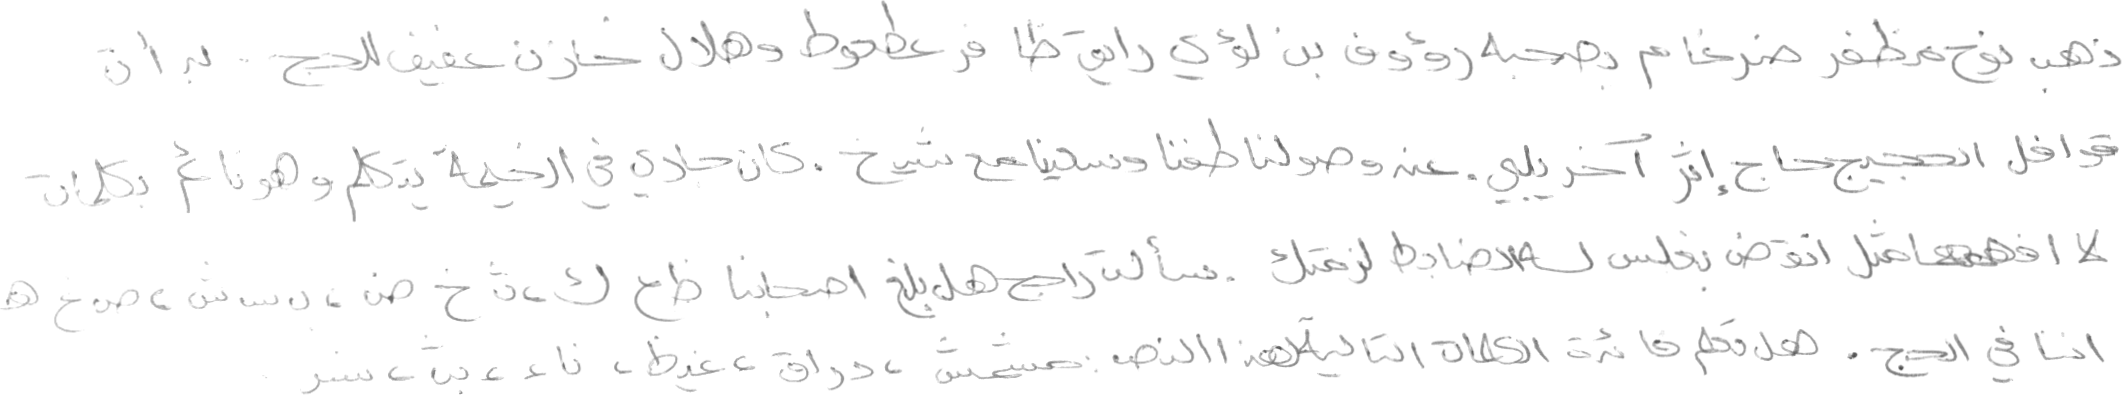 ذهب نوح مظفر ضرغام بصحبه رؤوف بن لؤي رايق ظافر عطعوط وهلال خازن عفيف للحج. بدأت
قوافل الحجيج حاج إثر آخر يلبي. عند وصولنا طفنا وسعينا مع شيخ. كان حادي في الخيمة يتكلم وهو نائم بكلمات
لا افهمها مثل انقض بغلس لسه ضابط لزعتك. سألت راجح هل بلغ اصحابنا ظ ع ك، ث خ ض، ب س ش، ص غ ه
اننا في الحج. هل تكم فائدة الكلمات التالية لهذا النص: مشمش، دراق، غيظ، ناء، بث، سنر